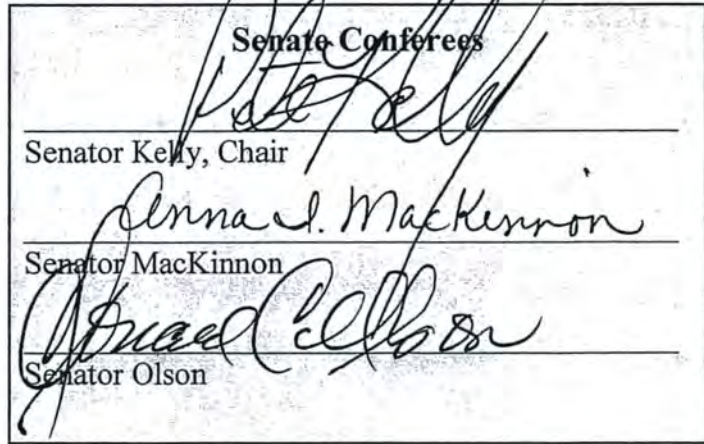 Senate Conferees
Pete Kelly
Senator Kelly, Chair
Anna I. MacKinnon
Senator MacKinnon
Donald C Olson
Senator Olson